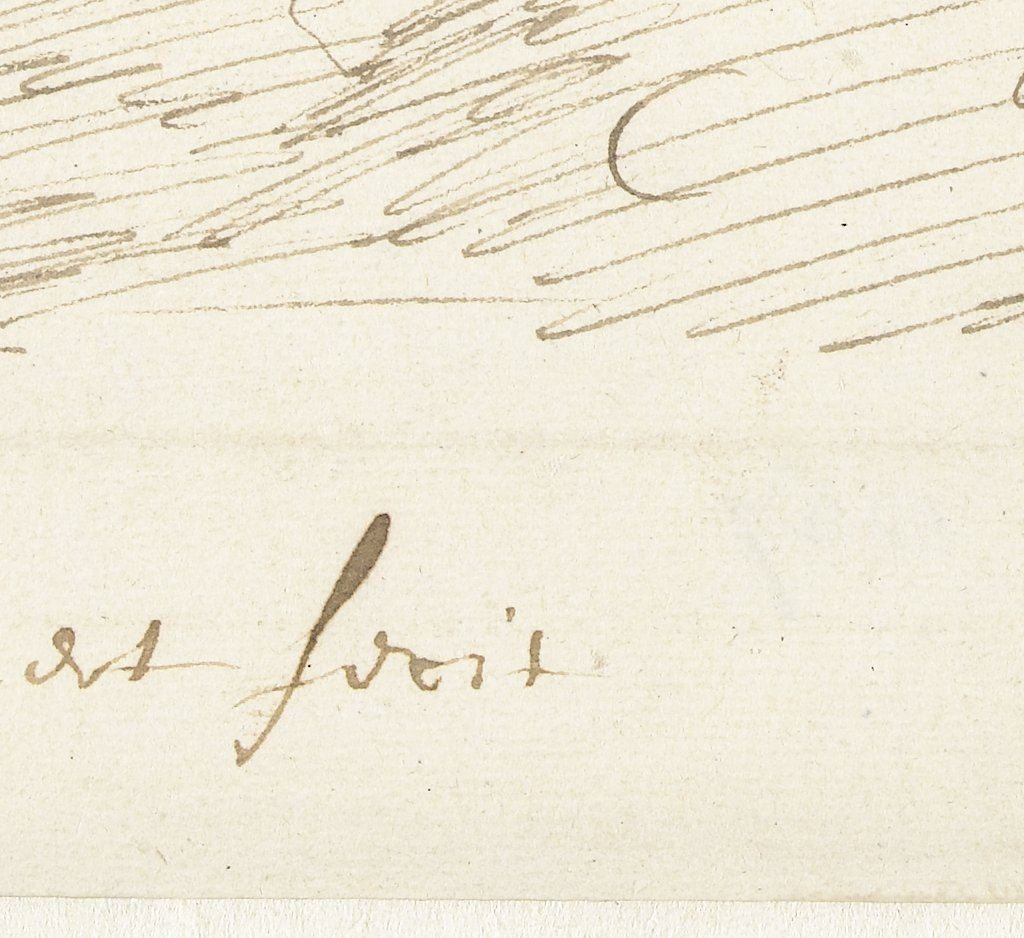 ert fecit